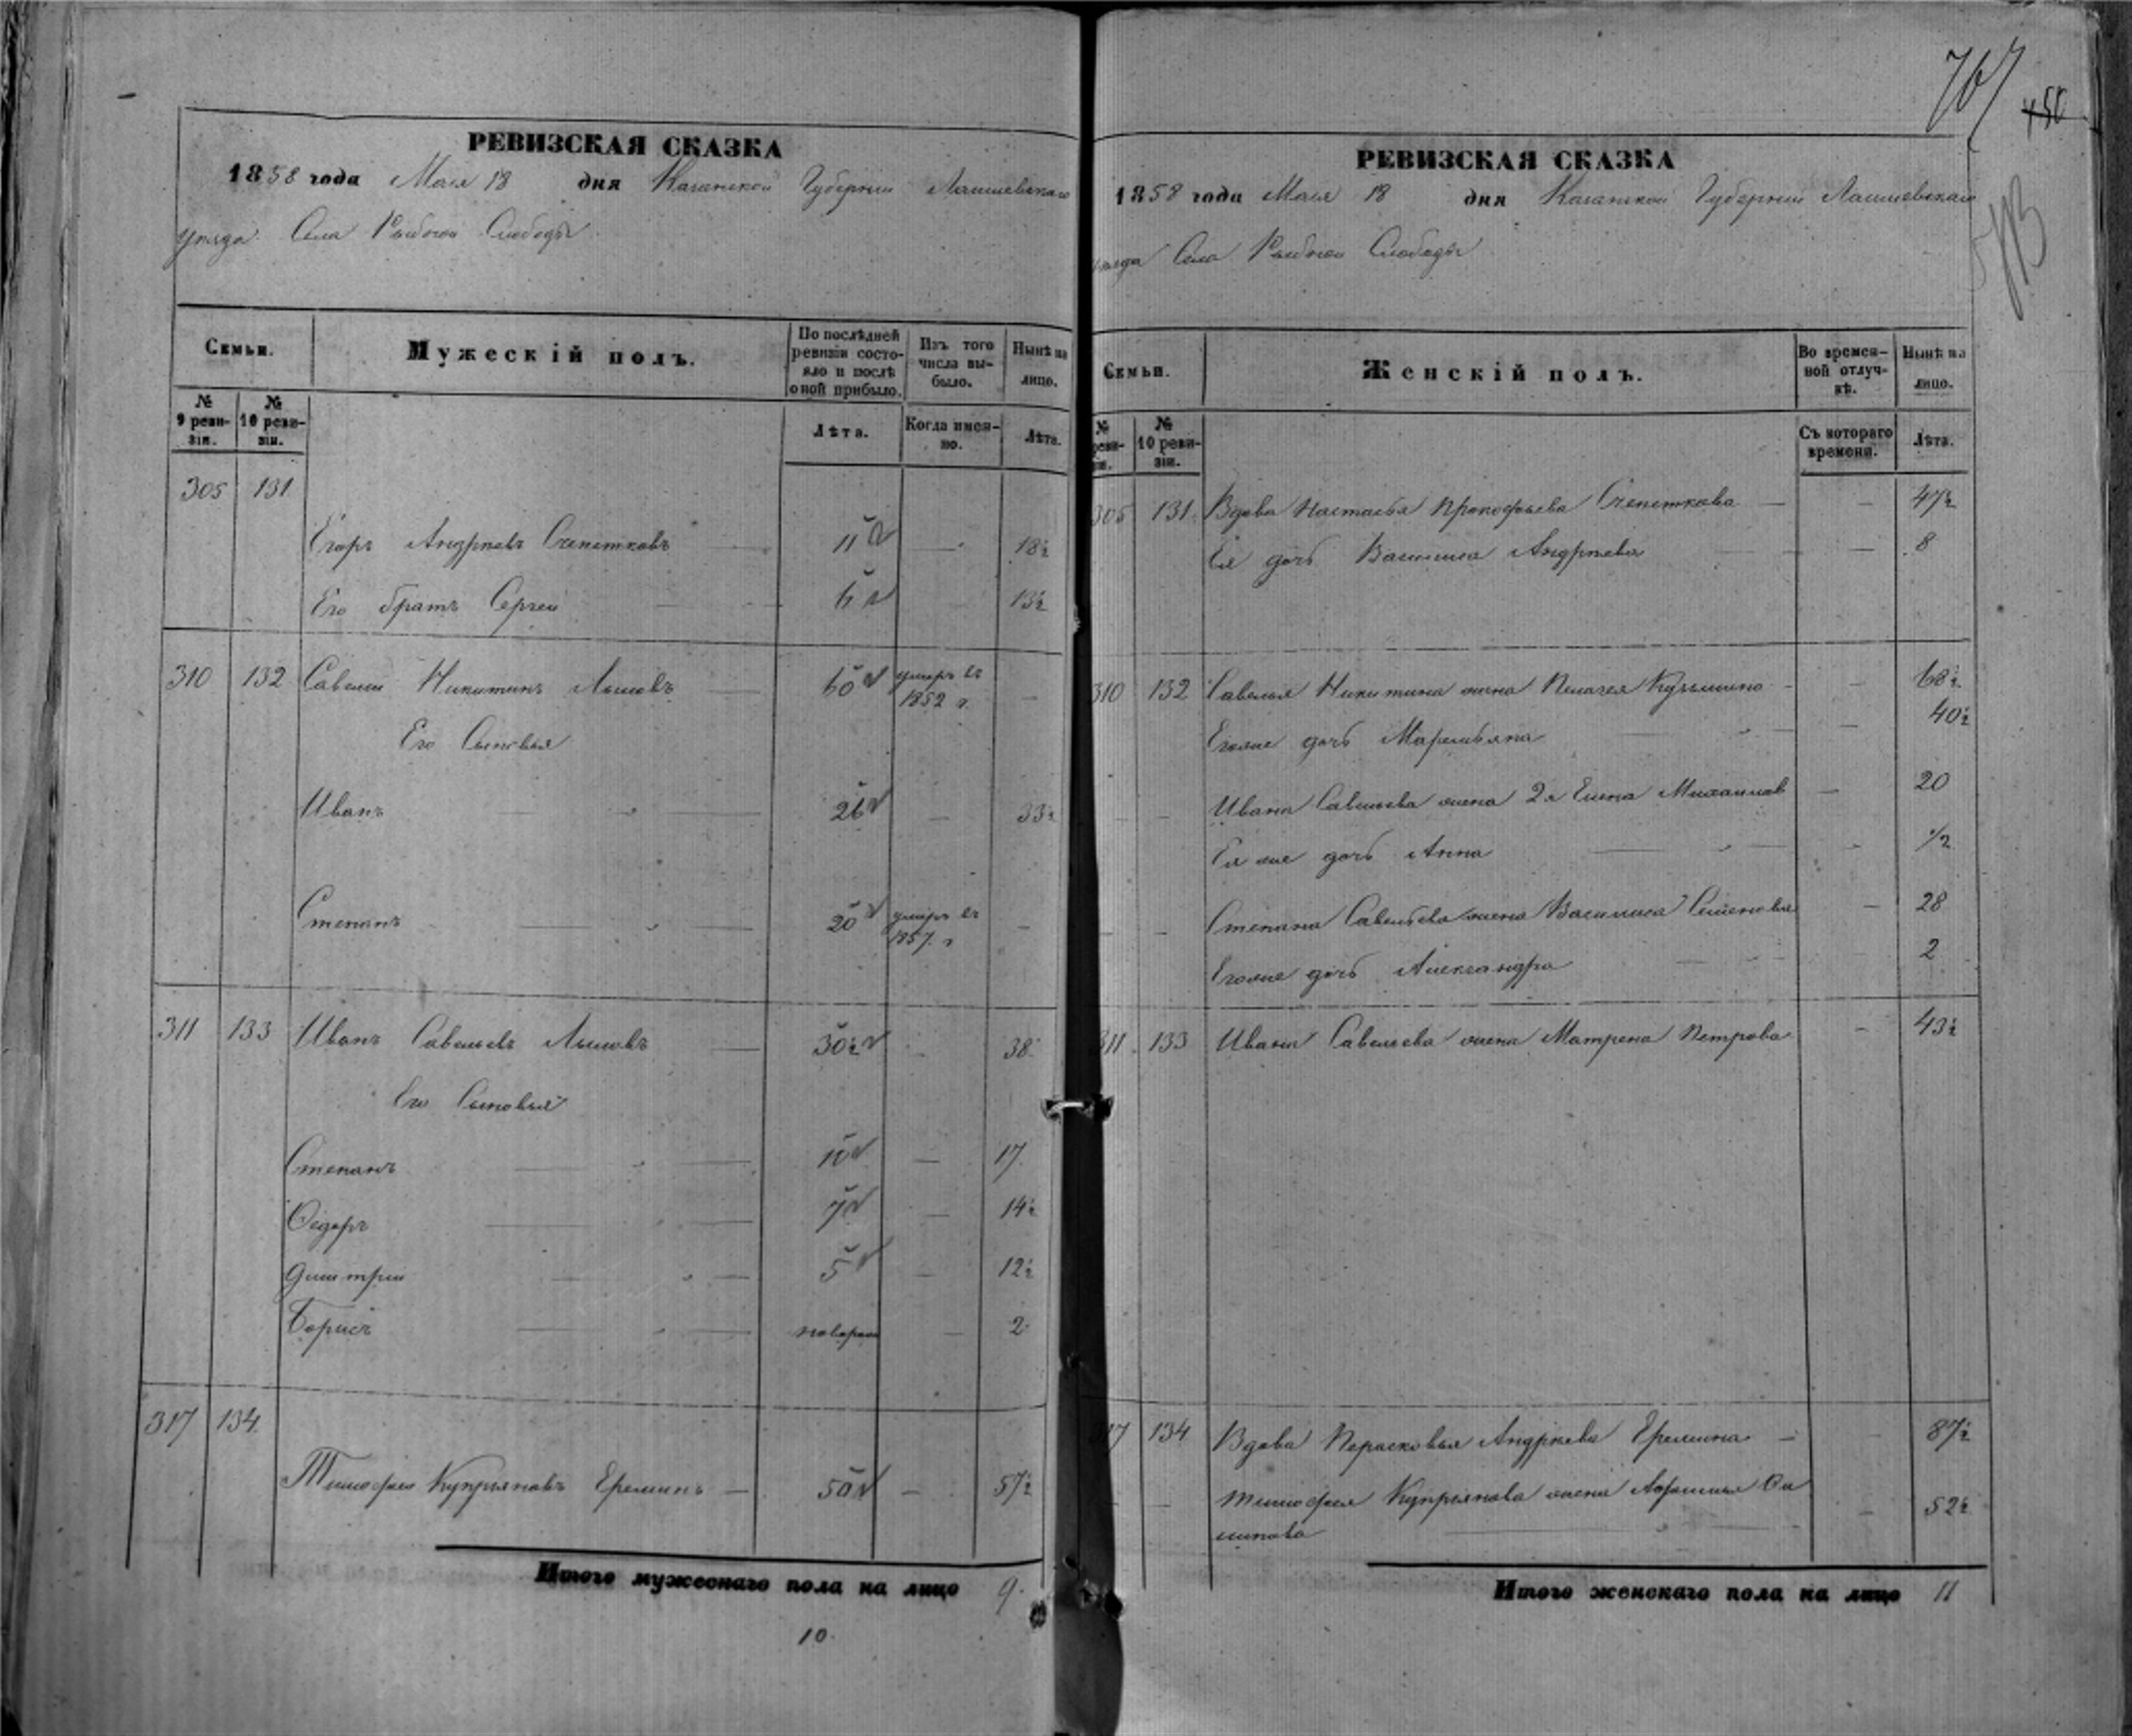 767
450
РЕВИЗСКАЯ СКАЗКА
1858 года Мая 18 дня Казанской Губернии Лаишевскаго
уѣзда Села Рыбной Слободы
Семьи.
Мужескій полъ.
По послѣдней ревизіи состояло и послѣ оной прибыло.
Изъ того числа выбыло.
Нынѣ на лицо.
№ 9 ревизіи.
№ 10 ревизіи.
Лѣта.
Когда именно.
Лѣта.
305 131
Егоръ Андреевъ 11 — 18½
Его братъ Сергей 6 — 13½
310 132 Савелий Никитинъ Лышовъ 60 умеръ въ 1852 г. —
Его Сыновья
Иванъ 26 — 33½
Степанъ 20 умеръ въ 1857 г —
311 133 Иванъ Савельевъ Лышовъ 30½ 38
Его Сыновья
Степанъ 10 — 17
Ѳедоръ 7 — 14½
Дмитрий 5 — 12½
Борисъ новорож — 2
317 134
Тимофей Куприяновъ Ереминъ — 50 — 57½
Итого мужескаго пола на лицо 9.
10.
РЕВИЗСКАЯ СКАЗКА
1858 года Мая 18 дня Казанской Губернии Лаишевскаго
уѣзда Села Рыбной Слободы
Семьи.
Женскій полъ.
Во временной отлучкѣ.
Нынѣ на лицо.
№ ревизіи.
№ 10 ревизіи.
Съ котораго времени.
Лѣта.
305 131 Вдова Настасья Прокофьева — 47½
Ея дочь Василиса Андреева — 8
310 132 Савелья Никитина жена Пелагея Кузьмина — 68½
Егоже дочь Маремьяна — 40½
Ивана Савельева жена 2я Елена Михайлов — 20
Ея же дочь Анна — ½
Степана Савельева жена Василиса Семенова — 28
Егоже дочь Александра 2
311 133 Ивана Савельева жена Матрена Петрова — 43½
317 134 Вдова Парасковья Андреева Еремина — 87½
Тимофея Куприянова жена Афимья Оси
пова — 52½
Итого женскаго пола на лицо 11